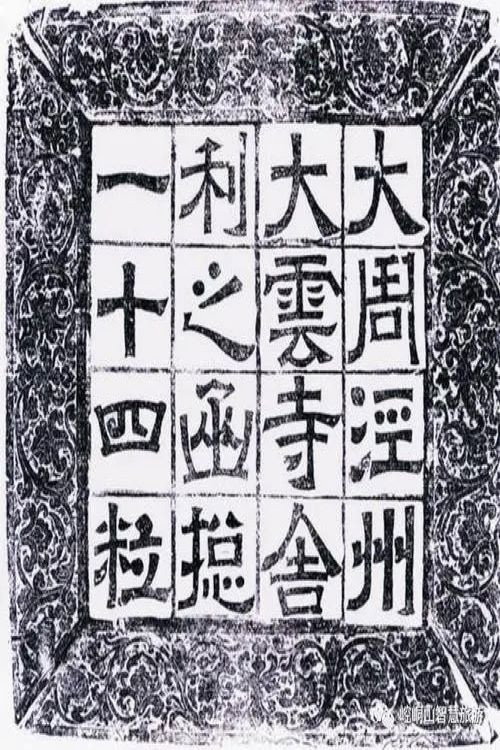 大周泾州
大雲寺舎
利之函揔
一十四粒
崆峒山智慧旅游